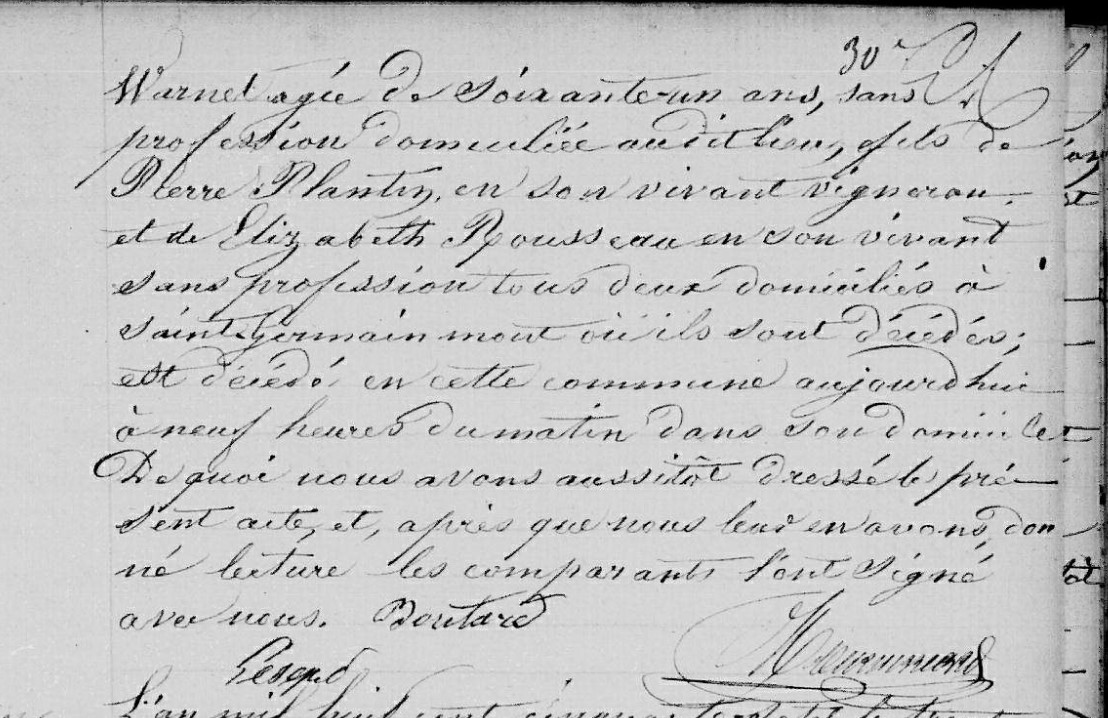 30
Warnet agée de Soixante-un ans, sans
profession domiciliée audit lieu, fils de
Pierre Plantin, en son vivant vigneron,
et de Elizabeth Rousseau en son vivant
sans profession tous deux domiciliés à
Saint-Germainmont où ils sont décédés;
est décédé en cette commune aujourdhui
à neuf heures du matin dans son domicile
De quoi nous avons aussitôt dressé le pré-
sent acte, et, après que nous leur en avons, don-
né lecture les comparants l'ont signé
avec nous. Boutard
L'an mil huit cent cinquante